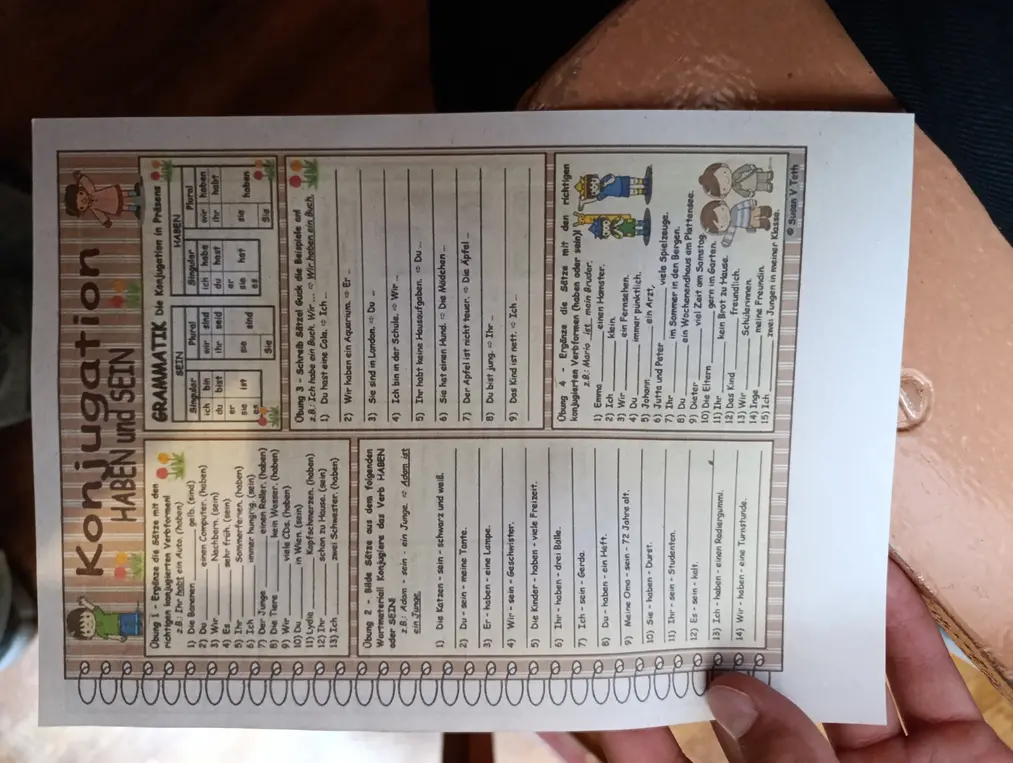 Konjugation
HABEN und SEIN
Übung 1 - Ergänze die Sätze mit den
richtigen konjugierten Verbformen!
z.B.: Ihr habt ein Auto. (haben)
1) Die Bananen ______ gelb. (sind)
2) Du ______ einen Computer. (haben)
3) Wir ______ Nachbarn. (sein)
4) Es ______ sehr früh. (sein)
5) Ihr ______ Sommerferien. (haben)
6) Ich ______ immer hungrig. (sein)
7) Der Junge ______ einen Roller. (haben)
8) Die Tiere ______ kein Wasser. (haben)
9) Wir ______ viele CDs. (haben)
10) Du ______ in Wien. (sein)
11) Lydia ______ Kopfschmerzen. (haben)
12) Ihr ______ schon zu Hause. (sein)
13) Ich ______ zwei Schwester. (haben)
Übung 2 - Bilde Sätze aus dem folgenden
Wortmaterial! Konjugiere das Verb HABEN
oder SEIN!
z.B.: Adam - sein - ein Junge. ⇨ Adam ist
ein Junge.
1) Die Katzen - sein - schwarz und weiß.
2) Du - sein - meine Tante.
3) Er - haben - eine Lampe.
4) Wir - sein - Geschwister.
5) Die Kinder - haben - viele Freizeit.
6) Ihr - haben - drei Bälle.
7) Ich - sein - Gerda.
8) Du - haben - ein Heft.
9) Meine Oma - sein - 72 Jahre alt.
10) Sie - haben - Durst.
11) Ihr - sein - Studenten.
12) Es - sein - kalt.
13) Ich - haben - einen Radiergummi.
14) Wir - haben - eine Turnstunde.
GRAMMATIK Die Konjugation in Präsens
SEIN HABEN
Singular Plural Singular Plural
ich bin wir sind ich habe wir haben
du bist ihr seid du hast ihr habt
er er
sie ist sie sind sie hat sie haben
es Sie es Sie
Übung 3 - Schreib Sätze! Guck die Beispiele an!
z.B.: Ich habe ein Buch. Wir ... ⇨ Wir haben ein Buch.
1) Du hast eine Cola. ⇨ Ich ...
2) Wir haben ein Aquarium. ⇨ Er ...
3) Sie sind in London. ⇨ Du ...
4) Ich bin in der Schule. ⇨ Wir ...
5) Ihr habt keine Hausaufgaben. ⇨ Du ...
6) Sie hat einen Hund. ⇨ Die Mädchen ...
7) Der Apfel ist nicht teuer. ⇨ Die Äpfel ...
8) Du bist jung. ⇨ Ihr ...
9) Das Kind ist nett. ⇨ Ich ...
Übung 4 - Ergänze die Sätze mit den richtigen
konjugierten Verbformen (haben oder sein)!
z.B.: Mario ist mein Bruder.
1) Emma ______ einen Hamster.
2) Ich ______ klein.
3) Wir ______ ein Fernsehen.
4) Du ______ immer pünktlich.
5) Johann ______ ein Arzt.
6) Jutta und Peter ______ viele Spielzeuge.
7) Ihr ______ im Sommer in den Bergen.
8) Du ______ ein Wochenendhaus am Plattensee.
9) Dieter ______ viel Zeit am Samstag.
10) Die Eltern ______ gern im Garten.
11) Ihr ______ kein Brot zu Hause.
12) Das Kind ______ freundlich.
13) Wir ______ Schülerinnen.
14) Inge ______ meine Freundin.
15) Ich ______ zwei Jungen in meiner Klasse.
© Susan V Toth